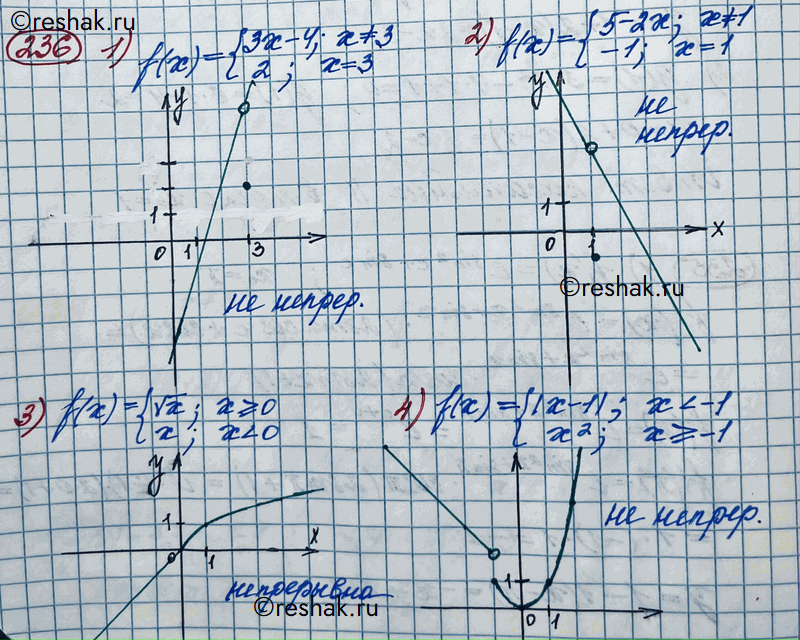 ©reshak.ru
236 1) f(x)={3x-4; x≠3
2; x=3
y
1
0 1 3
не непрер.
2) f(x)={5-2x; x≠1
-1; x=1
y
не
непрер.
1
0 1 x
©reshak.ru
3) f(x)={√x; x≥0
x; x<0
y
1
0 1 x
непрерывна
©reshak.ru
4) f(x)={|x-1|; x<-1
x²; x≥-1
не непрер.
1
0 1